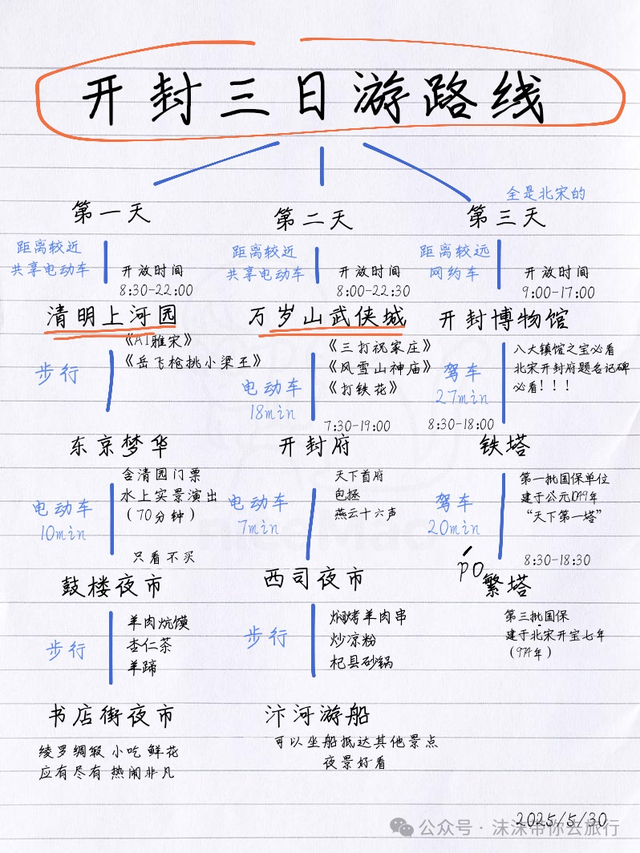 开封三日游路线
全是北宋的
第一天
距离较近
共享电动车
开放时间
8:30-22:00
清明上河园
《AI雅宋》
《岳飞枪挑小梁王》
步行
东京梦华
含清园门票
水上实景演出
(70分钟)
电动车
10min
只看不买
鼓楼夜市
羊肉炕馍
杏仁茶
羊蹄
步行
书店街夜市
绫罗绸缎 小吃 鲜花
应有尽有 热闹非凡
第二天
距离较近
共享电动车
开放时间
8:00-22:30
万岁山武侠城
《三打祝家庄》
《风雪山神庙》
《打铁花》
电动车
18min
7:30-19:00
开封府
天下首府
包拯
燕云十六声
电动车
7min
西司夜市
焖烤羊肉串
炒凉粉
杞县砂锅
步行
汴河游船
可以坐船抵达其他景点
夜景好看
第三天
距离较远
网约车
开放时间
9:00-17:00
开封博物馆
八大镇馆之宝必看
北宋开封府题名记碑
必看!!!
驾车
27min
8:30-18:00
铁塔
第一批国保单位
建于公元
“天下第一塔”
驾车
20min
8:30-18:30
pó
繁塔
第三批国保
建于北宋开宝七年
(974年)
2025/5/30
公众号·沫沫带你去旅行